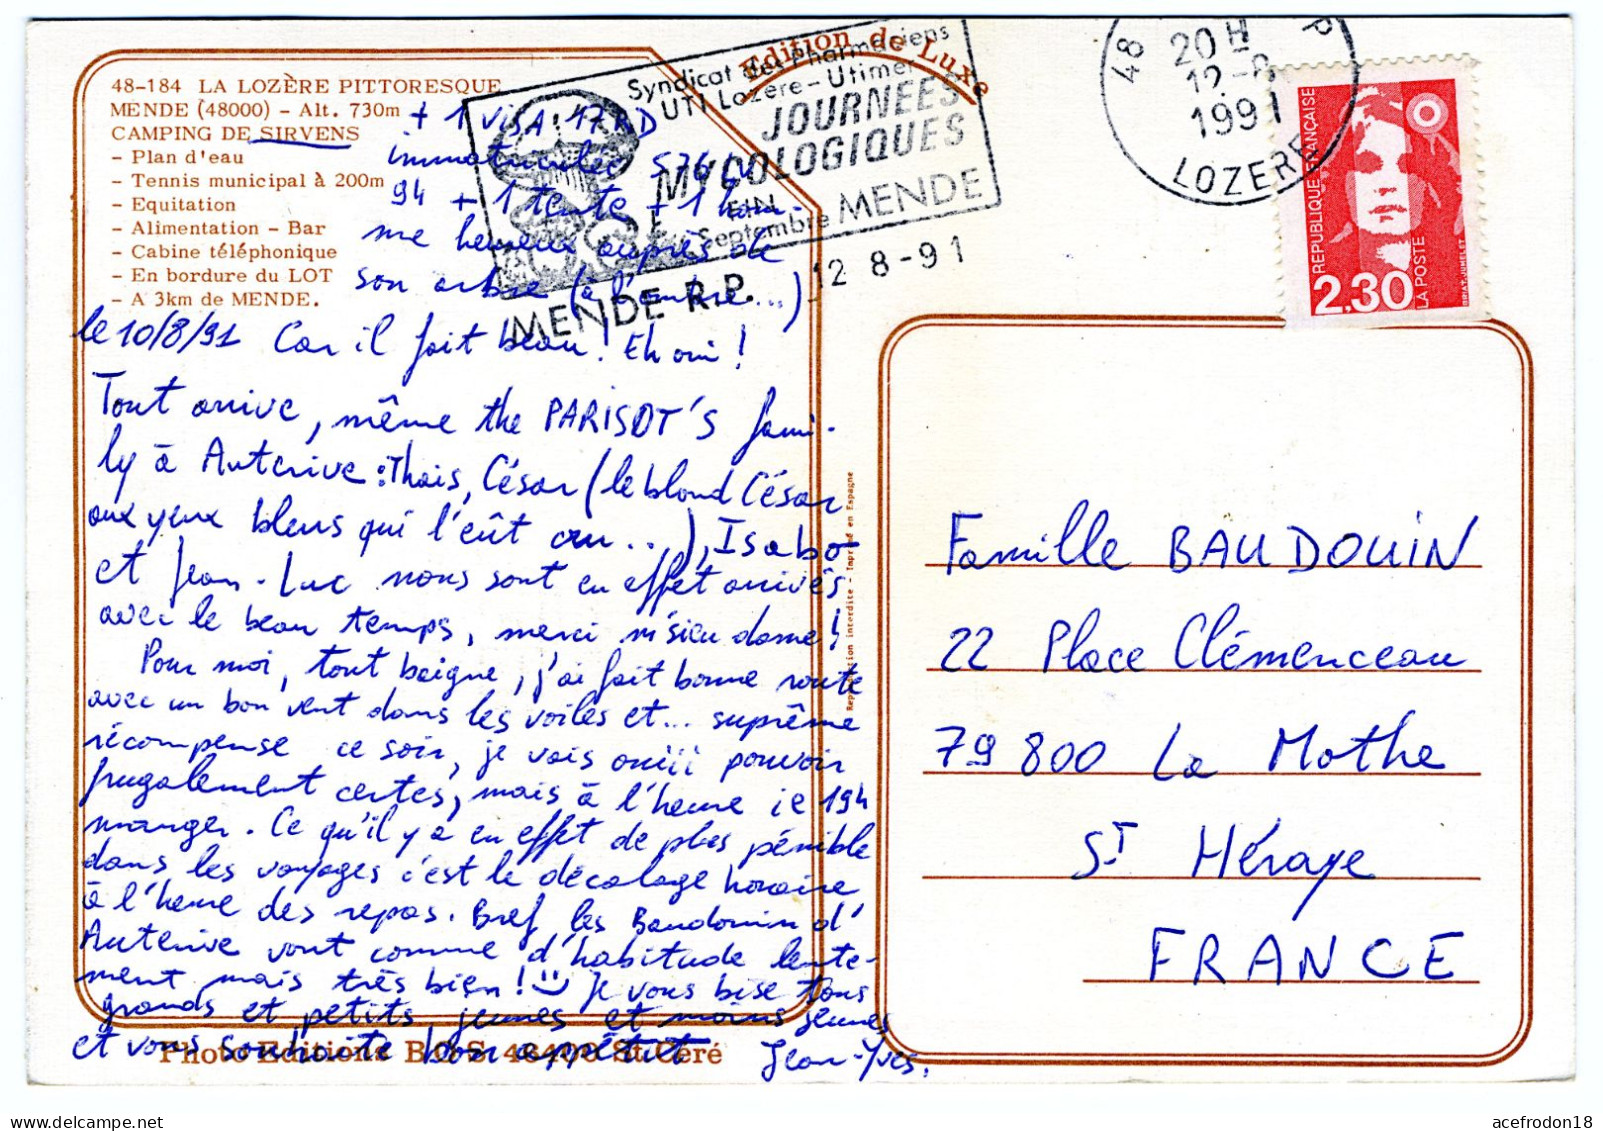 48-184 LA LOZÈRE PITTORESQUE
MENDE (48000) - Alt. 730m
CAMPING DE SIRVENS
- Plan d'eau
- Tennis municipal à 200m
- Equitation
- Alimentation - Bar
- Cabine téléphonique
- En bordure du LOT
- A 3km de MENDE.
+ 1 VISA 17RD
immatriculée 576
94 + 1 tente + 1 hom-
me heureux auprès de
son arbre (à l'ombre...)
le 10/8/91 Car il fait beau! Eh oui!
Tout arrive, même the PARISOT'S fami-
ly à Auterive : Thaïs, César (le blond César
aux yeux bleus qui l'eût cru...), Isabo
et Jean-Luc nous sont en effet arrivés
avec le beau temps, merci m'sieu dame!
Pour moi, tout baigne, j'ai fait bonne route
avec un bon vent dans les voiles et... suprême
récompense ce soir, je vais ouiii pouvoir
frugalement certes, mais à l'heure ie 19h
manger. Ce qu'il y a en effet de plus pénible
dans les voyages c'est le décalage horaire
à l'heure des repas. Bref, les Baudouin d'
Auterive vont comme d'habitude lente-
ment mais très bien! Je vous bise tous
grands et petits, jeunes et moins jeunes
et vous souhaite bon appétit Jean-Yves.
Photo Editions B.O.S. 46400 St-Céré
Edition de Luxe
Syndicat des Pharmaciens
UTI Lozère - Utimer
JOURNEES
MYCOLOGIQUES
FIN
septembre MENDE
MENDE R.P. 12 8-91
48 P
20H
12-8
1991
LOZERE
REPUBLIQUE FRANÇAISE
2,30
LA POSTE
BRIAT.JUMELET
Reproduction interdite - Imprimé en Espagne
Famille BAUDOUIN
22 Place Clémenceau
79 800 La Mothe
St Héraye
FRANCE
acefrodon18